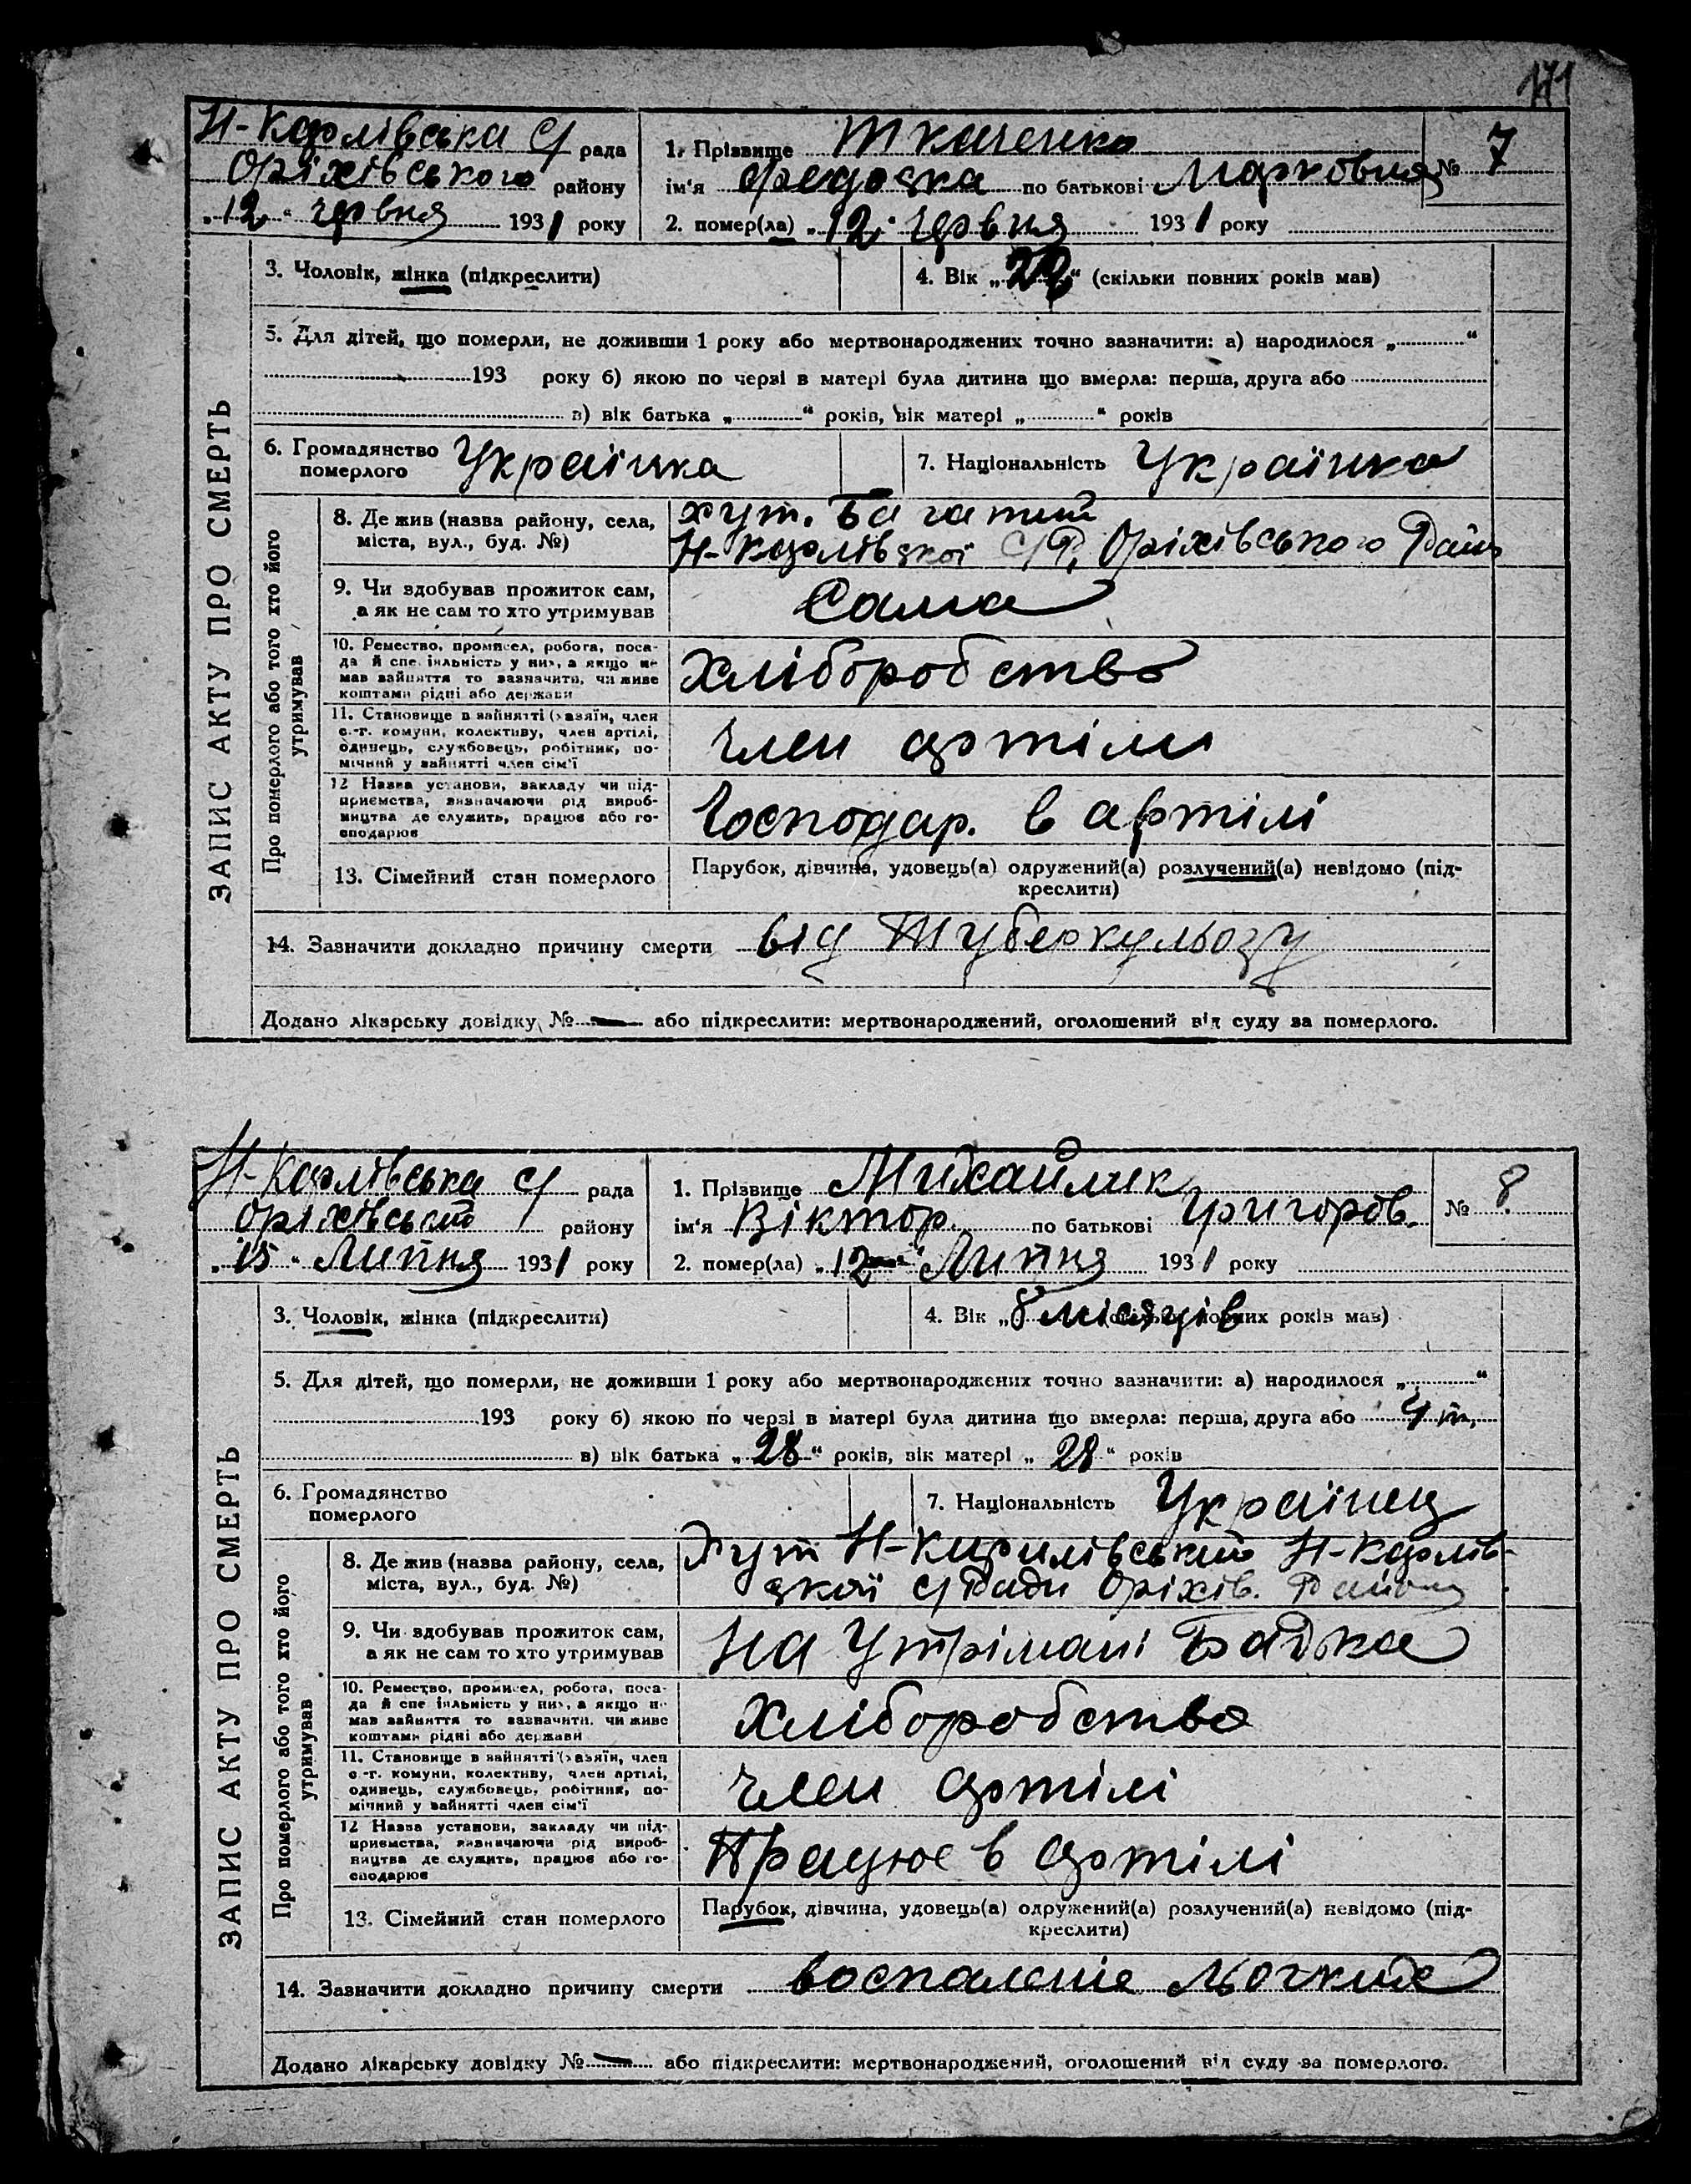 171
Н-Карлівська С/ рада
Оріхівського району
„12“ червня 1931 року
1. Прізвище Ткаченко
ім'я Федоска по батькові Марковна
№ 7
2. помер(ла) „12“ червня 1931 року
3. Чоловік, жінка (підкреслити)
4. Вік „ “ (скільки повних років мав)
5. Для дітей, що померли, не доживши 1 року або мертвонароджених точно зазначити: а) народилося „ “
193 року б) якою по черзі в матері була дитина що вмерла: перша, друга або
в) вік батька „ “ років, вік матері „ “ років
6. Громадянство померлого Українка
7. Національність Українка
ЗАПИС АКТУ ПРО СМЕРТЬ
Про померлого або того хто його утримував
8. Де жив (назва району, села, міста, вул., буд. №)
хут. Багатий
Н-Карлівської С/Р, Оріхівського Рай
9. Чи здобував прожиток сам, а як не сам то хто утримував
Сама
10. Ремество, промисел, робота, посада й спеціяльність у них, а якщо не мав зайняття то зазначити, чи живе коштами рідні або держави
Хліборобство
11. Становище в зайнятті (хазяїн, член с.-г. комуни, колективу, член артілі, одинець, службовець, робітник, помічний у зайнятті член сім'ї
член артіли
12 Назва установи, закладу чи підприємства, визначаючи рід виробництва де служить, працює або господарює
Господар. в артілі
13. Сімейний стан померлого
Парубок, дівчина, удовець(а) одружений(а) розлучений(а) невідомо (підкреслити)
14. Зазначити докладно причину смерти від Туберкульозу
Додано лікарську довідку № — або підкреслити: мертвонароджений, оголошений від суду за померлого.
Н-Карлівська С/ рада
Оріхівський району
„15“ Липня 1931 року
1. Прізвище Михайлик
ім'я Віктор по батькові Григоров.
№ 8
2. помер(ла) „12“ Липня 1931 року
3. Чоловік, жінка (підкреслити)
4. Вік „8 місяців (скільки повних років мав)
5. Для дітей, що померли, не доживши 1 року або мертвонароджених точно зазначити: а) народилося „ “
193 року б) якою по черзі в матері була дитина що вмерла: перша, друга або
в) вік батька „28“ років, вік матері „28“ років
6. Громадянство померлого
7. Національність Українец
ЗАПИС АКТУ ПРО СМЕРТЬ
Про померлого або того хто його утримував
8. Де жив (назва району, села, міста, вул., буд. №)
Хут Н-Кирилівський Н-Карлів-
ської С/Ради Оріхів. Району
9. Чи здобував прожиток сам, а як не сам то хто утримував
На Утрімані Бадька
10. Ремество, промисел, робота, посада й спеціяльність у них, а якщо не мав зайняття то зазначити, чи живе коштами рідні або держави
Хліборобство
11. Становище в зайнятті (хазяїн, член с.-г. комуни, колективу, член артілі, одинець, службовець, робітник, помічний у зайнятті член сім'ї
член артілі
12 Назва установи, закладу чи підприємства, визначаючи рід виробництва де служить, працює або господарює
Працює в артілі
13. Сімейний стан померлого
Парубок, дівчина, удовець(а) одружений(а) розлучений(а) невідомо (підкреслити)
14. Зазначити докладно причину смерти воспаленіе Льогких
Додано лікарську довідку № — або підкреслити: мертвонароджений, оголошений від суду за померлого.